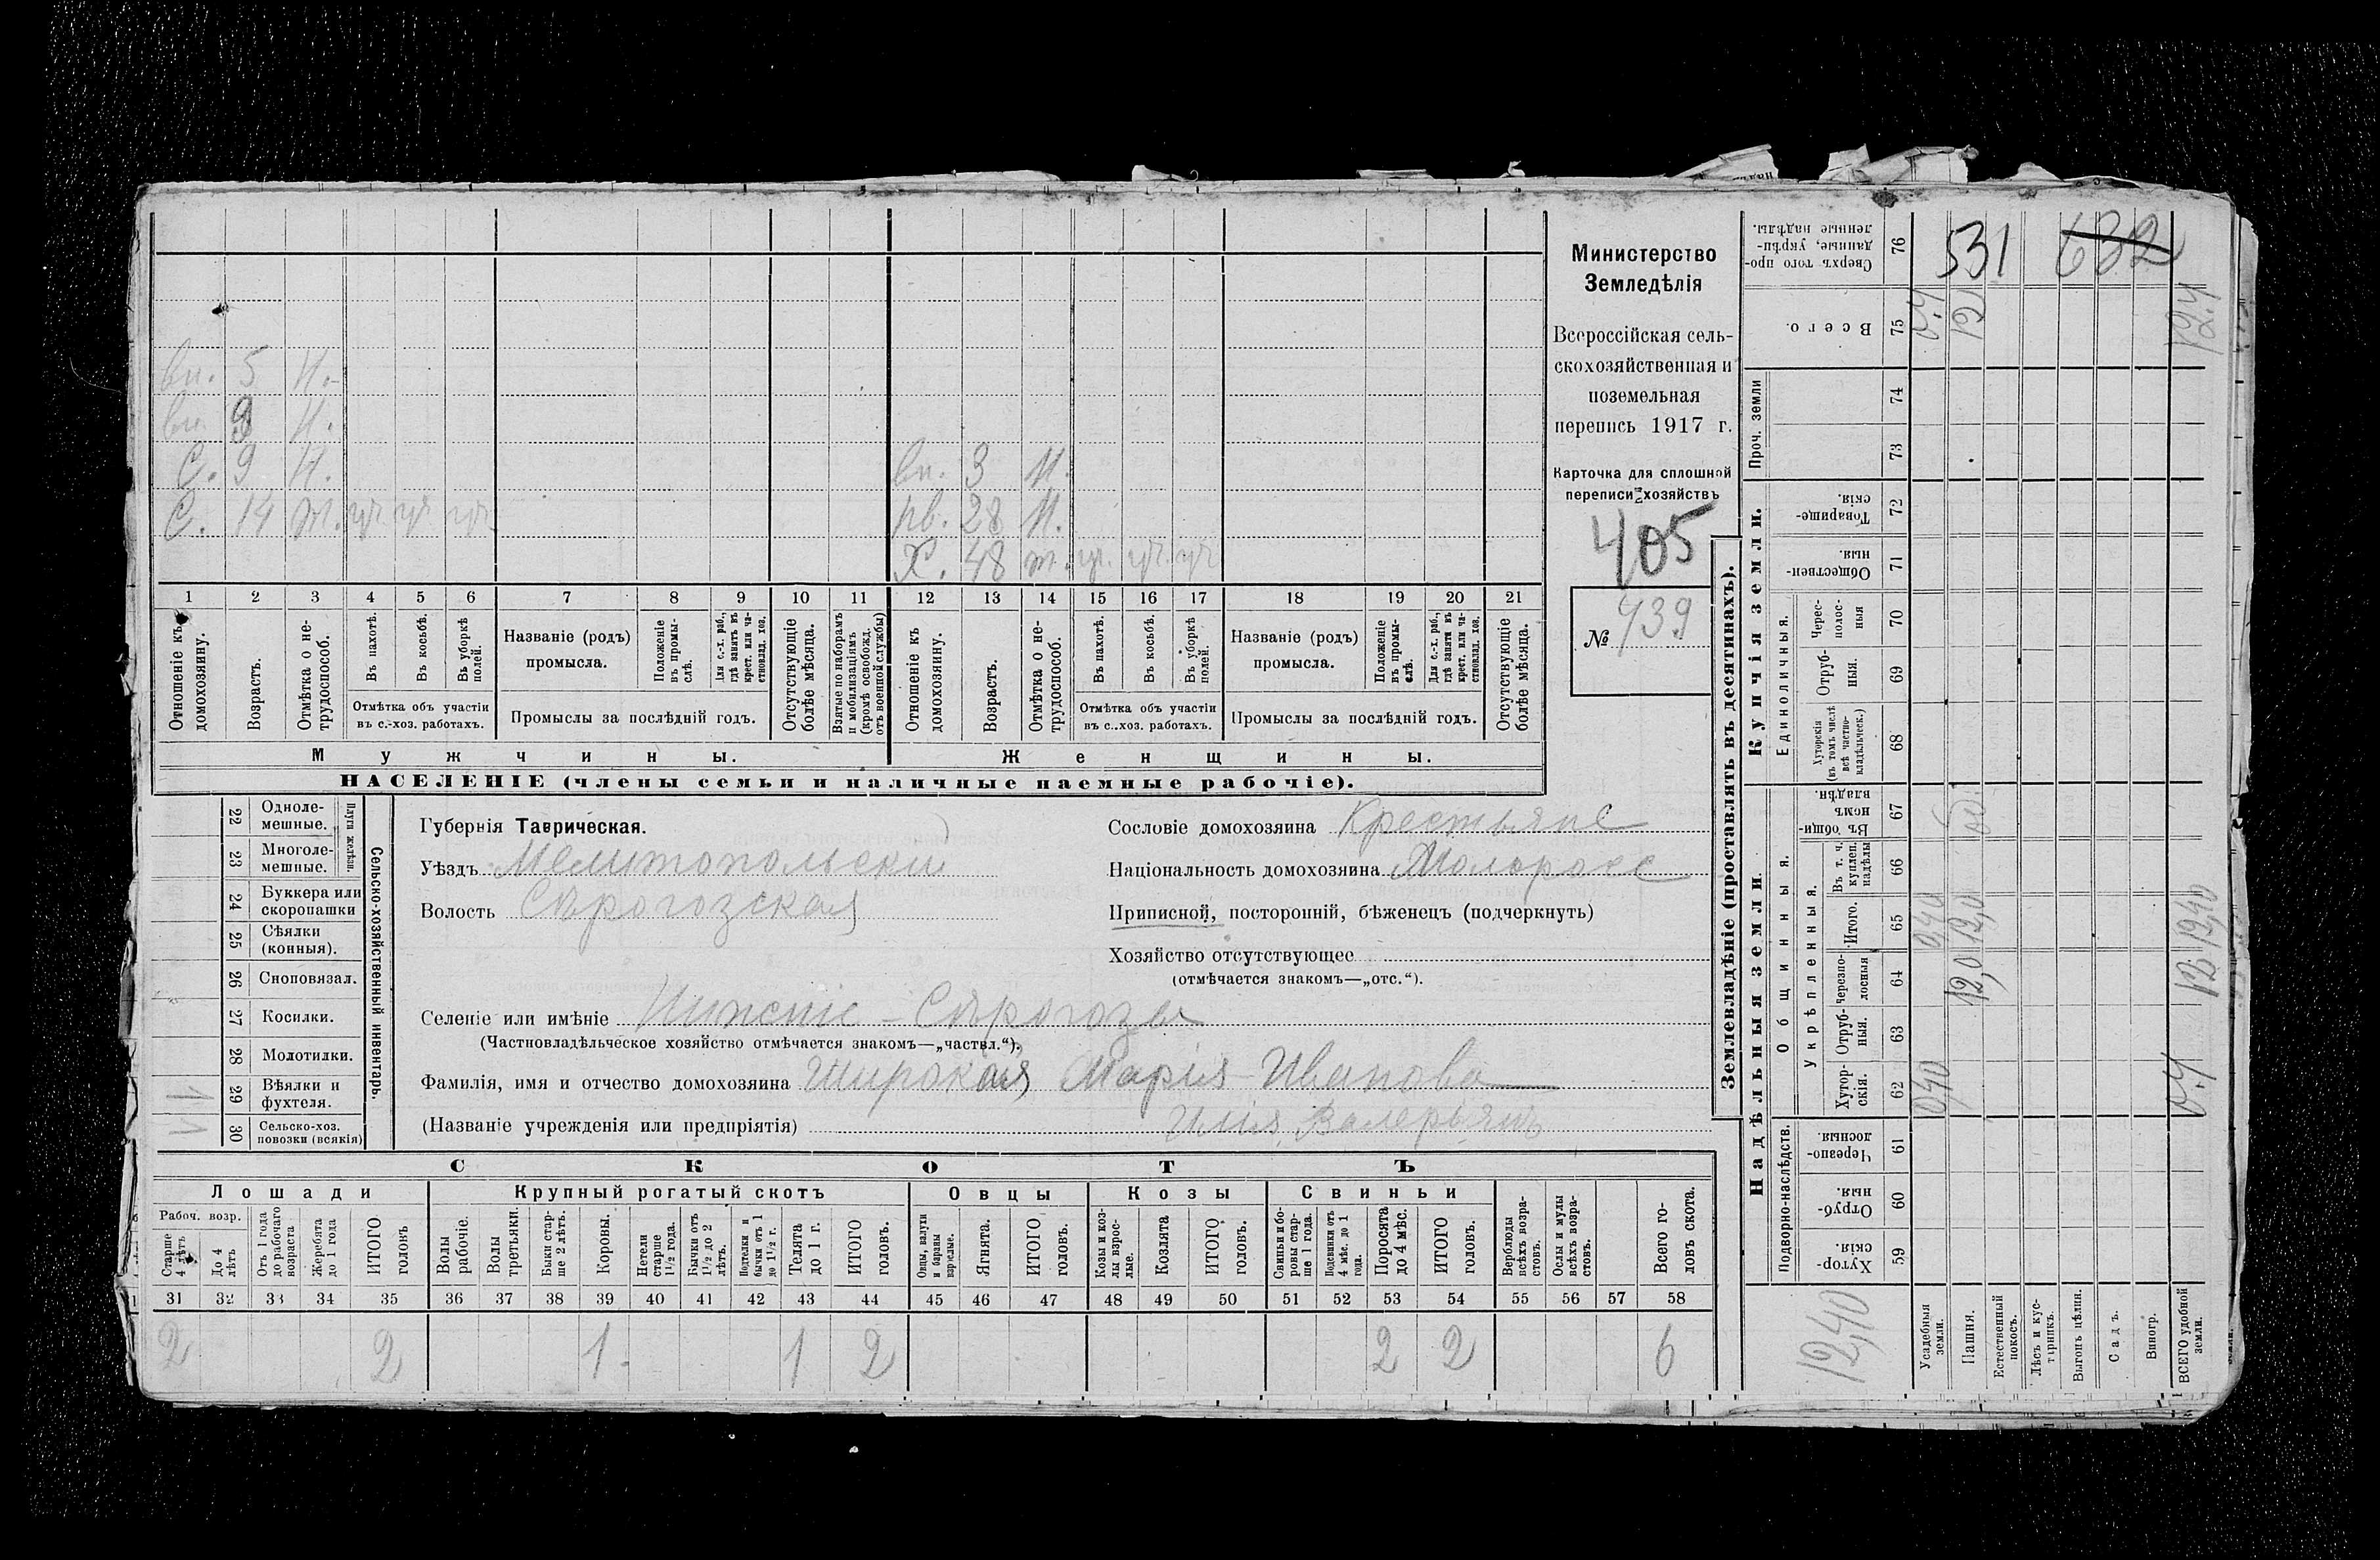 вн. 5 Н.
вн. Н.
С. 9 Н. вн. 3 Н.
С. 14 т. уч. уч. уч. нв. 28 Н.
Х. 48 т. уч. уч. уч.
1 2 3 4 5 6 7 8 9 10 11 12 13 14 15 16 17 18 19 20 21
Отношеніе къ домохозяину.
Возрастъ.
Отмѣтка о нетрудоспособ.
Въ пахотѣ.
Въ косьбѣ.
Въ уборкѣ полей.
Отмѣтка объ участіи въ с.-хоз. работахъ.
Названіе (родъ) промысла.
Положеніе въ промыслѣ.
Для с.-х. раб., гдѣ занятъ въ крест. или частновлад. хоз.
Промыслы за послѣдній годъ.
Отсутствующіе болѣе мѣсяца.
Взятые по наборамъ и мобилизаціямъ (кромѣ освобожд. отъ военной службы)
Отношеніе къ домохозяину.
Возрастъ.
Отмѣтка о нетрудоспособ.
Въ пахотѣ.
Въ косьбѣ.
Въ уборкѣ полей.
Отмѣтка объ участіи въ с.-хоз. работахъ.
Названіе (родъ) промысла.
Положеніе въ промыслѣ.
Для с.-х. раб., гдѣ заняты въ крест. или частновлад. хоз.
Промыслы за послѣдній годъ.
Отсутствующіе болѣе мѣсяца.
Мужчины. Женщины.
НАСЕЛЕНІЕ (члены семьи и наличные наемные рабочіе).
Министерство
Земледѣлія
Всероссійская сель-
скохозяйственная и
поземельная
перепись 1917 г.
Карточка для сплошной
переписи хозяйствъ
405
№ 439
Сельско-хозяйственный инвентарь.
Плуги желѣзн.
22 Одноле-
мешные.
23 Многоле-
мешные.
24 Буккера или
скоропашки
25 Сѣялки
(конныя).
26 Сноповязал.
27 Косилки.
28 Молотилки.
29 Вѣялки и
фухтеля.
30 Сельско-хоз.
повозки (всякія)
Губернія Таврическая.
Уѣздъ Мелитопольскій
Волость Сѣрогозская
Сословіе домохозяина Крестьяне
Національность домохозяина Малоросс
Приписной, посторонній, бѣженецъ (подчеркнуть)
Хозяйство отсутствующее
(отмѣчается знакомъ—„отс.“).
Селеніе или имѣніе Нижніе - Сѣрогозы
(Частновладѣльческое хозяйство отмѣчается знакомъ—„частвл.“).
Фамилія, имя и отчество домохозяина Широкая Марія Иванова
(Названіе учрежденія или предпріятія) Илія, Валерьянъ
СКОТЪ
Лошади Крупный рогатый скотъ Овцы Козы Свиньи
Рабоч. возр.
Старше 4 лѣтъ
До 4 лѣтъ
Отъ 1 года до рабочаго возраста
Жеребята до 1 года
ИТОГО головъ
Волы рабочіе.
Волы третьяки.
Быки старше 2 лѣтъ.
Коровы.
Нетели старше 1½ года.
Бычки отъ 1½ до 2 лѣтъ.
Подтелки и бычки отъ 1 до 1½ г.
Телята до 1 г.
ИТОГО головъ.
Овцы, валухи и бараны взрослые.
Ягнята.
ИТОГО головъ.
Козы и козлы взрослые.
Козлята
ИТОГО головъ.
Свиньи и боровы старше 1 года.
Подсвинки отъ 4 мѣс. до 1 года.
Поросята до 4 мѣс.
ИТОГО головъ.
Верблюды всѣхъ возрастовъ.
Ослы и мулы всѣхъ возрастовъ.
Всего головъ скота.
31 32 33 34 35 36 37 38 39 40 41 42 43 44 45 46 47 48 49 50 51 52 53 54 55 56 57 58
2 2 1 1 2 2 2 6
Землевладѣніе (проставлять въ десятинахъ).
Надѣльныя земли.
Купчія земли.
Проч. земли
Подворно-наслѣдств.
Общинныя.
Укрѣпленныя.
Единоличныя.
59 Хуторскія.
60 Отрубныя.
61 Черезполосныя.
62 Хуторскія.
63 Отрубныя.
64 Черезполосныя
65 Итого.
66 Въ т. ч. куплен. надѣлы
67 Въ общинномъ владѣн.
68 Хуторскія (въ томъ числѣ всѣ частновладѣльческ.)
69 Отрубныя.
70 Черезполосныя
71 Общественныя.
72 Товарищескія.
73
74
75 Всего.
76 Сверхъ того проданные, укрѣпленные надѣлы.
12,40
Усадебныя земли. 0,40 0,40 0,4
Пашня. 12,0 12,0 12
Естественный покосъ.
Лѣсъ и кустарникъ.
Выгонъ цѣлин.
Садъ.
Виногр.
ВСЕГО удобной земли. 0,4 12 12,40 12,4
531
632